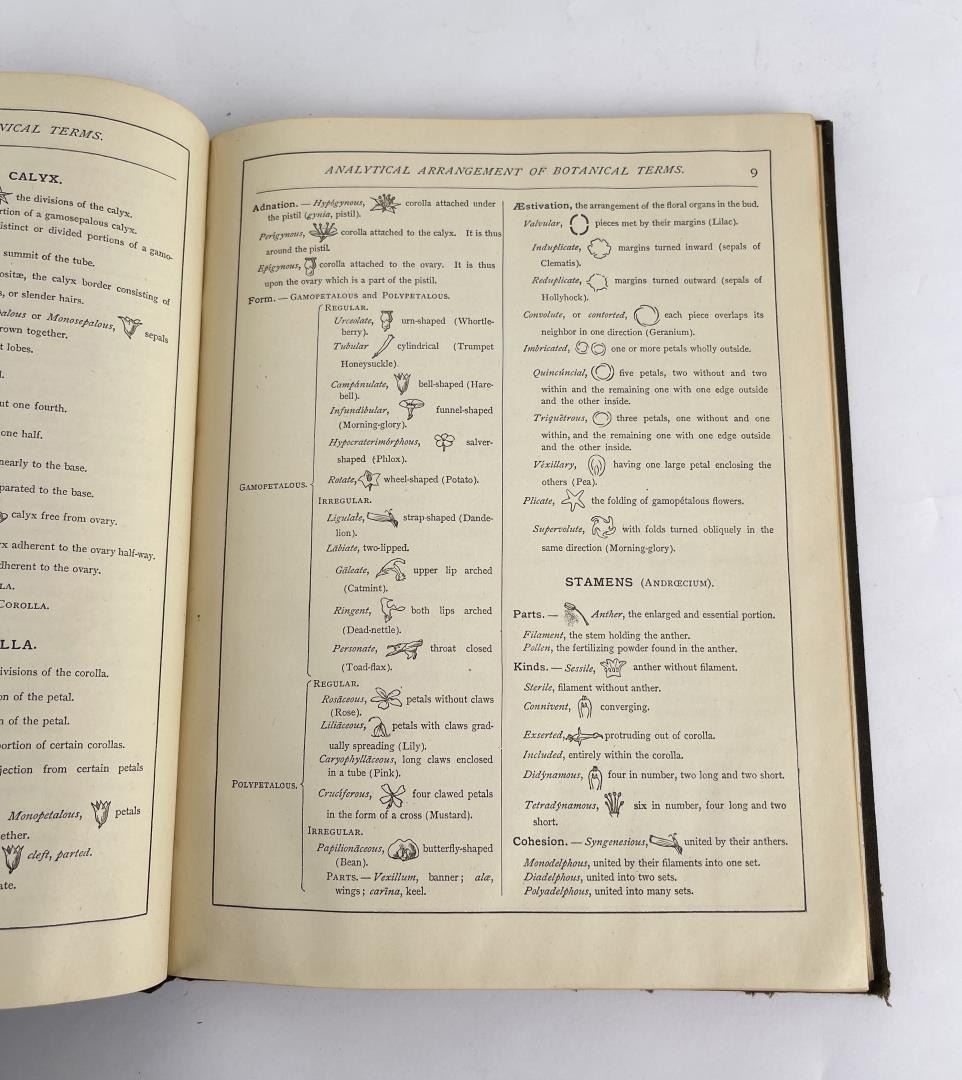 NICAL TERMS.
CALYX.
the divisions of the calyx.
rtion of a gamosepalous calyx.
istinct or divided portions of a gamo-
summit of the tube.
ositæ, the calyx border consisting of
s, or slender hairs.
alous or Monosepalous, sepals
rown together.
t lobes.
l.
ut one fourth.
one half.
nearly to the base.
parated to the base.
calyx free from ovary.
yx adherent to the ovary half-way.
dherent to the ovary.
LA.
COROLLA.
LLA.
ivisions of the corolla.
on of the petal.
n of the petal.
portion of certain corollas.
jection from certain petals
Monopetalous, petals
ether.
cleft, parted.
ate.
ANALYTICAL ARRANGEMENT OF BOTANICAL TERMS. 9
Adnation. — Hypógynous, corolla attached under
the pistil (gynia, pistil).
Perigynous, corolla attached to the calyx. It is thus
around the pistil.
Epígynous, corolla attached to the ovary. It is thus
upon the ovary which is a part of the pistil.
Form. — GAMOPETALOUS and POLYPETALOUS.
GAMOPETALOUS.
REGULAR.
Urceolate, urn-shaped (Whortle-
berry).
Tubular cylindrical (Trumpet
Honeysuckle).
Campánulate, bell-shaped (Hare-
bell).
Infundibular, funnel-shaped
(Morning-glory).
Hypocraterimórphous, salver-
shaped (Phlox).
Rotate, wheel-shaped (Potato).
IRREGULAR.
Ligulate, strap-shaped (Dande-
lion).
Lābiate, two-lipped.
Gāleate, upper lip arched
(Catmint).
Ringent, both lips arched
(Dead-nettle).
Personate, throat closed
(Toad-flax).
POLYPETALOUS.
REGULAR.
Rosāceous, petals without claws
(Rose).
Liliāceous, petals with claws grad-
ually spreading (Lily).
Caryophyllāceous, long claws enclosed
in a tube (Pink).
Crucíferous, four clawed petals
in the form of a cross (Mustard).
IRREGULAR.
Papilionāceous, butterfly-shaped
(Bean).
PARTS. — Vexillum, banner; alæ,
wings; carīna, keel.
Æstivation, the arrangement of the floral organs in the bud.
Valvular, pieces met by their margins (Lilac).
Induplicate, margins turned inward (sepals of
Clematis).
Reduplicate, margins turned outward (sepals of
Hollyhock).
Convolute, or contorted, each piece overlaps its
neighbor in one direction (Geranium).
Imbricated, one or more petals wholly outside.
Quincúncial, five petals, two without and two
within and the remaining one with one edge outside
and the other inside.
Triquētrous, three petals, one without and one
within, and the remaining one with one edge outside
and the other inside.
Véxillary, having one large petal enclosing the
others (Pea).
Plicate, the folding of gamopétalous flowers.
Supervolute, with folds turned obliquely in the
same direction (Morning-glory).
STAMENS (ANDRŒCIUM).
Parts. — Anther, the enlarged and essential portion.
Filament, the stem holding the anther.
Pollen, the fertilizing powder found in the anther.
Kinds. — Sessile, anther without filament.
Sterile, filament without anther.
Connivent, converging.
Exserted, protruding out of corolla.
Included, entirely within the corolla.
Didýnamous, four in number, two long and two short.
Tetradýnamous, six in number, four long and two
short.
Cohesion. — Syngenesious, united by their anthers.
Monodelphous, united by their filaments into one set.
Diadelphous, united into two sets.
Polyadelphous, united into many sets.